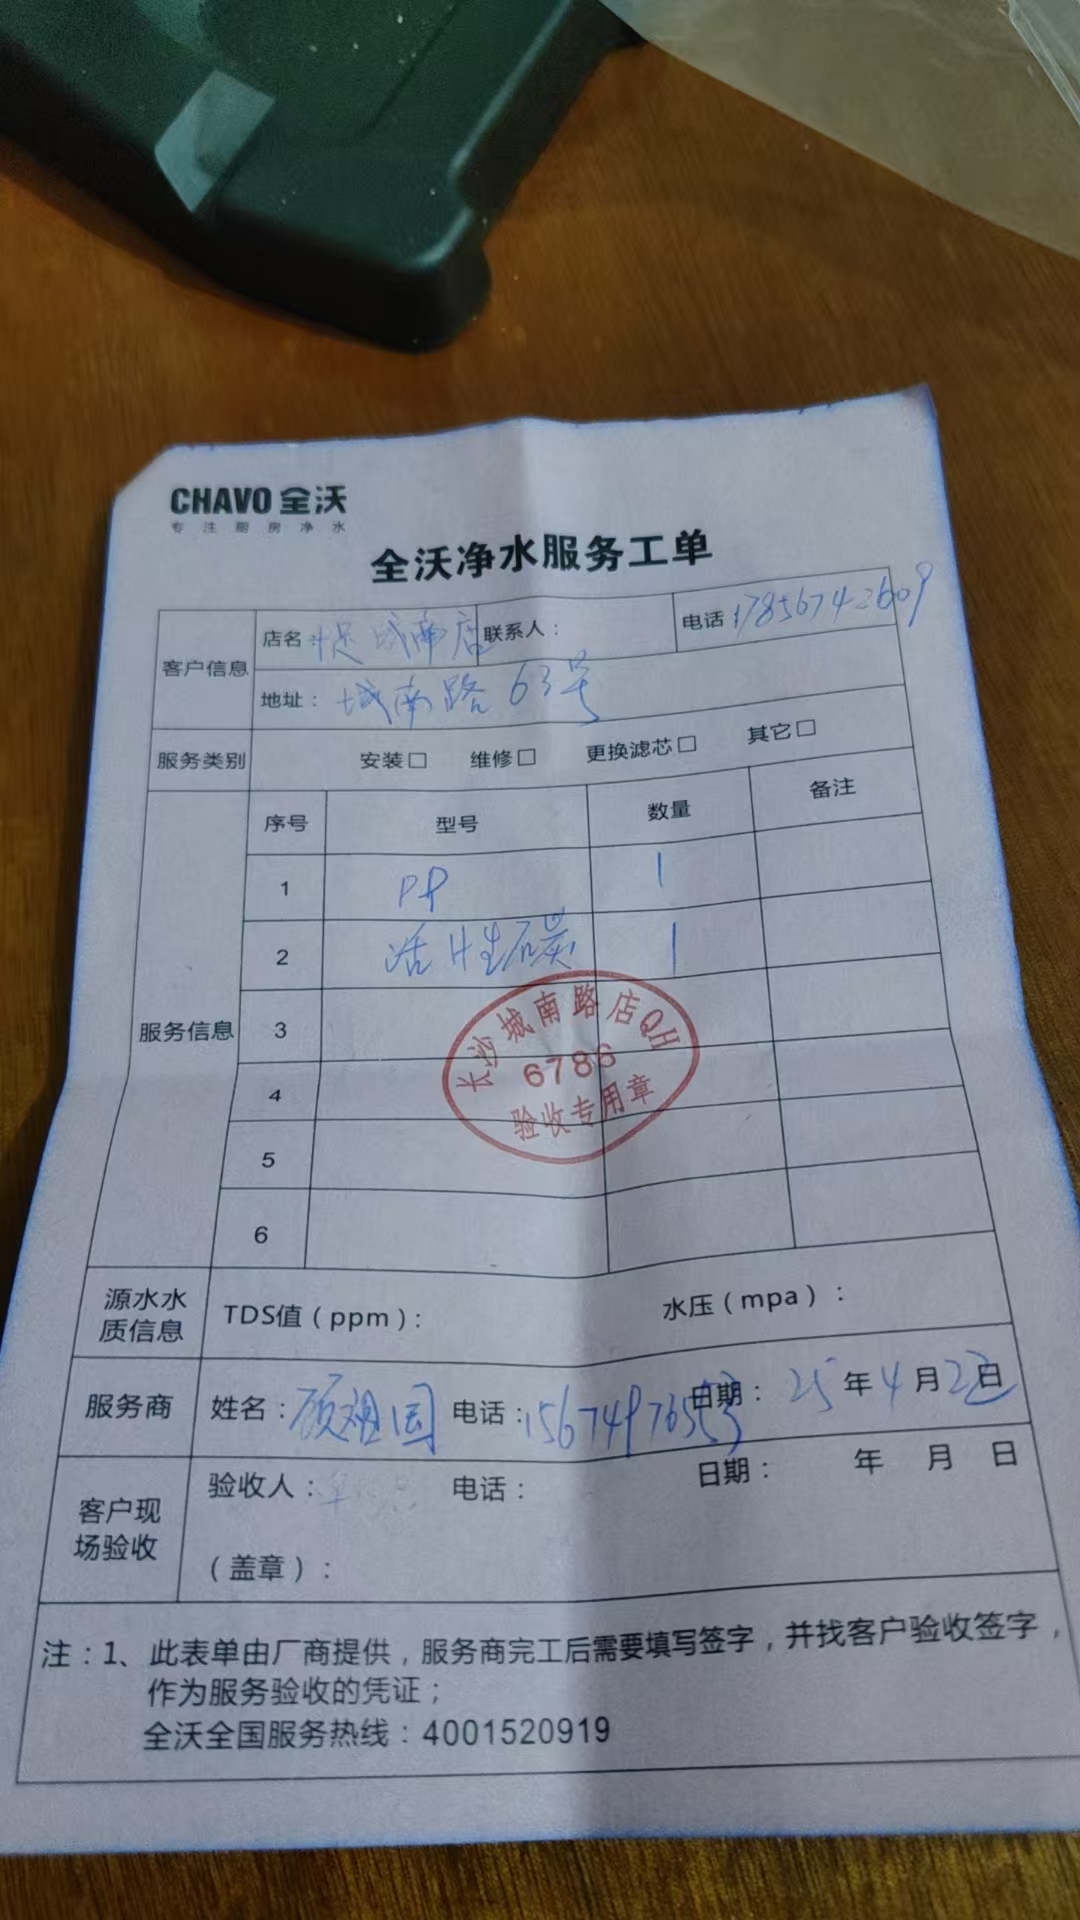 CHAVO 全沃
专注厨房净水
全沃净水服务工单
客户信息
店名: 城南店 联系人: 电话:17856742609
地址: 城南路63号
服务类别 安装□ 维修□ 更换滤芯□ 其它□
服务信息
序号 型号 数量 备注
1 PP 1
2 活性石炭 1
3
4
5
6
长沙城南路店QH
6786
验收专用章
源水水质信息 TDS值(ppm): 水压(mpa):
服务商 姓名: 顾祖国 电话:15674976553 日期: 25年4月2 日
客户现场验收
验收人: 电话: 日期: 年 月 日
(盖章):
注:1、此表单由厂商提供,服务商完工后需要填写签字,并找客户验收签字,
作为服务验收的凭证;
全沃全国服务热线:4001520919